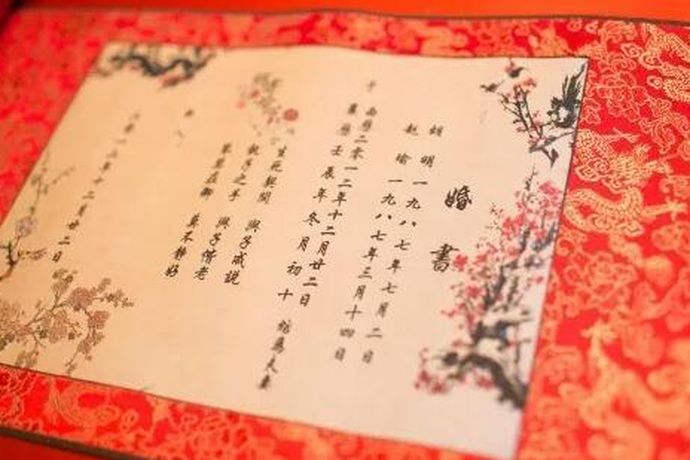 婚書
胡 明 一九八七年七月二日
赵 瑜 一九八七年三月十四日
于 西曆二零一二年十二月廿二日
農曆壬辰年冬月初十 結為夫妻
生死契闊 與子成說
執子之手 與子偕老
琴瑟在御 莫不静好
一二年十二月廿二日